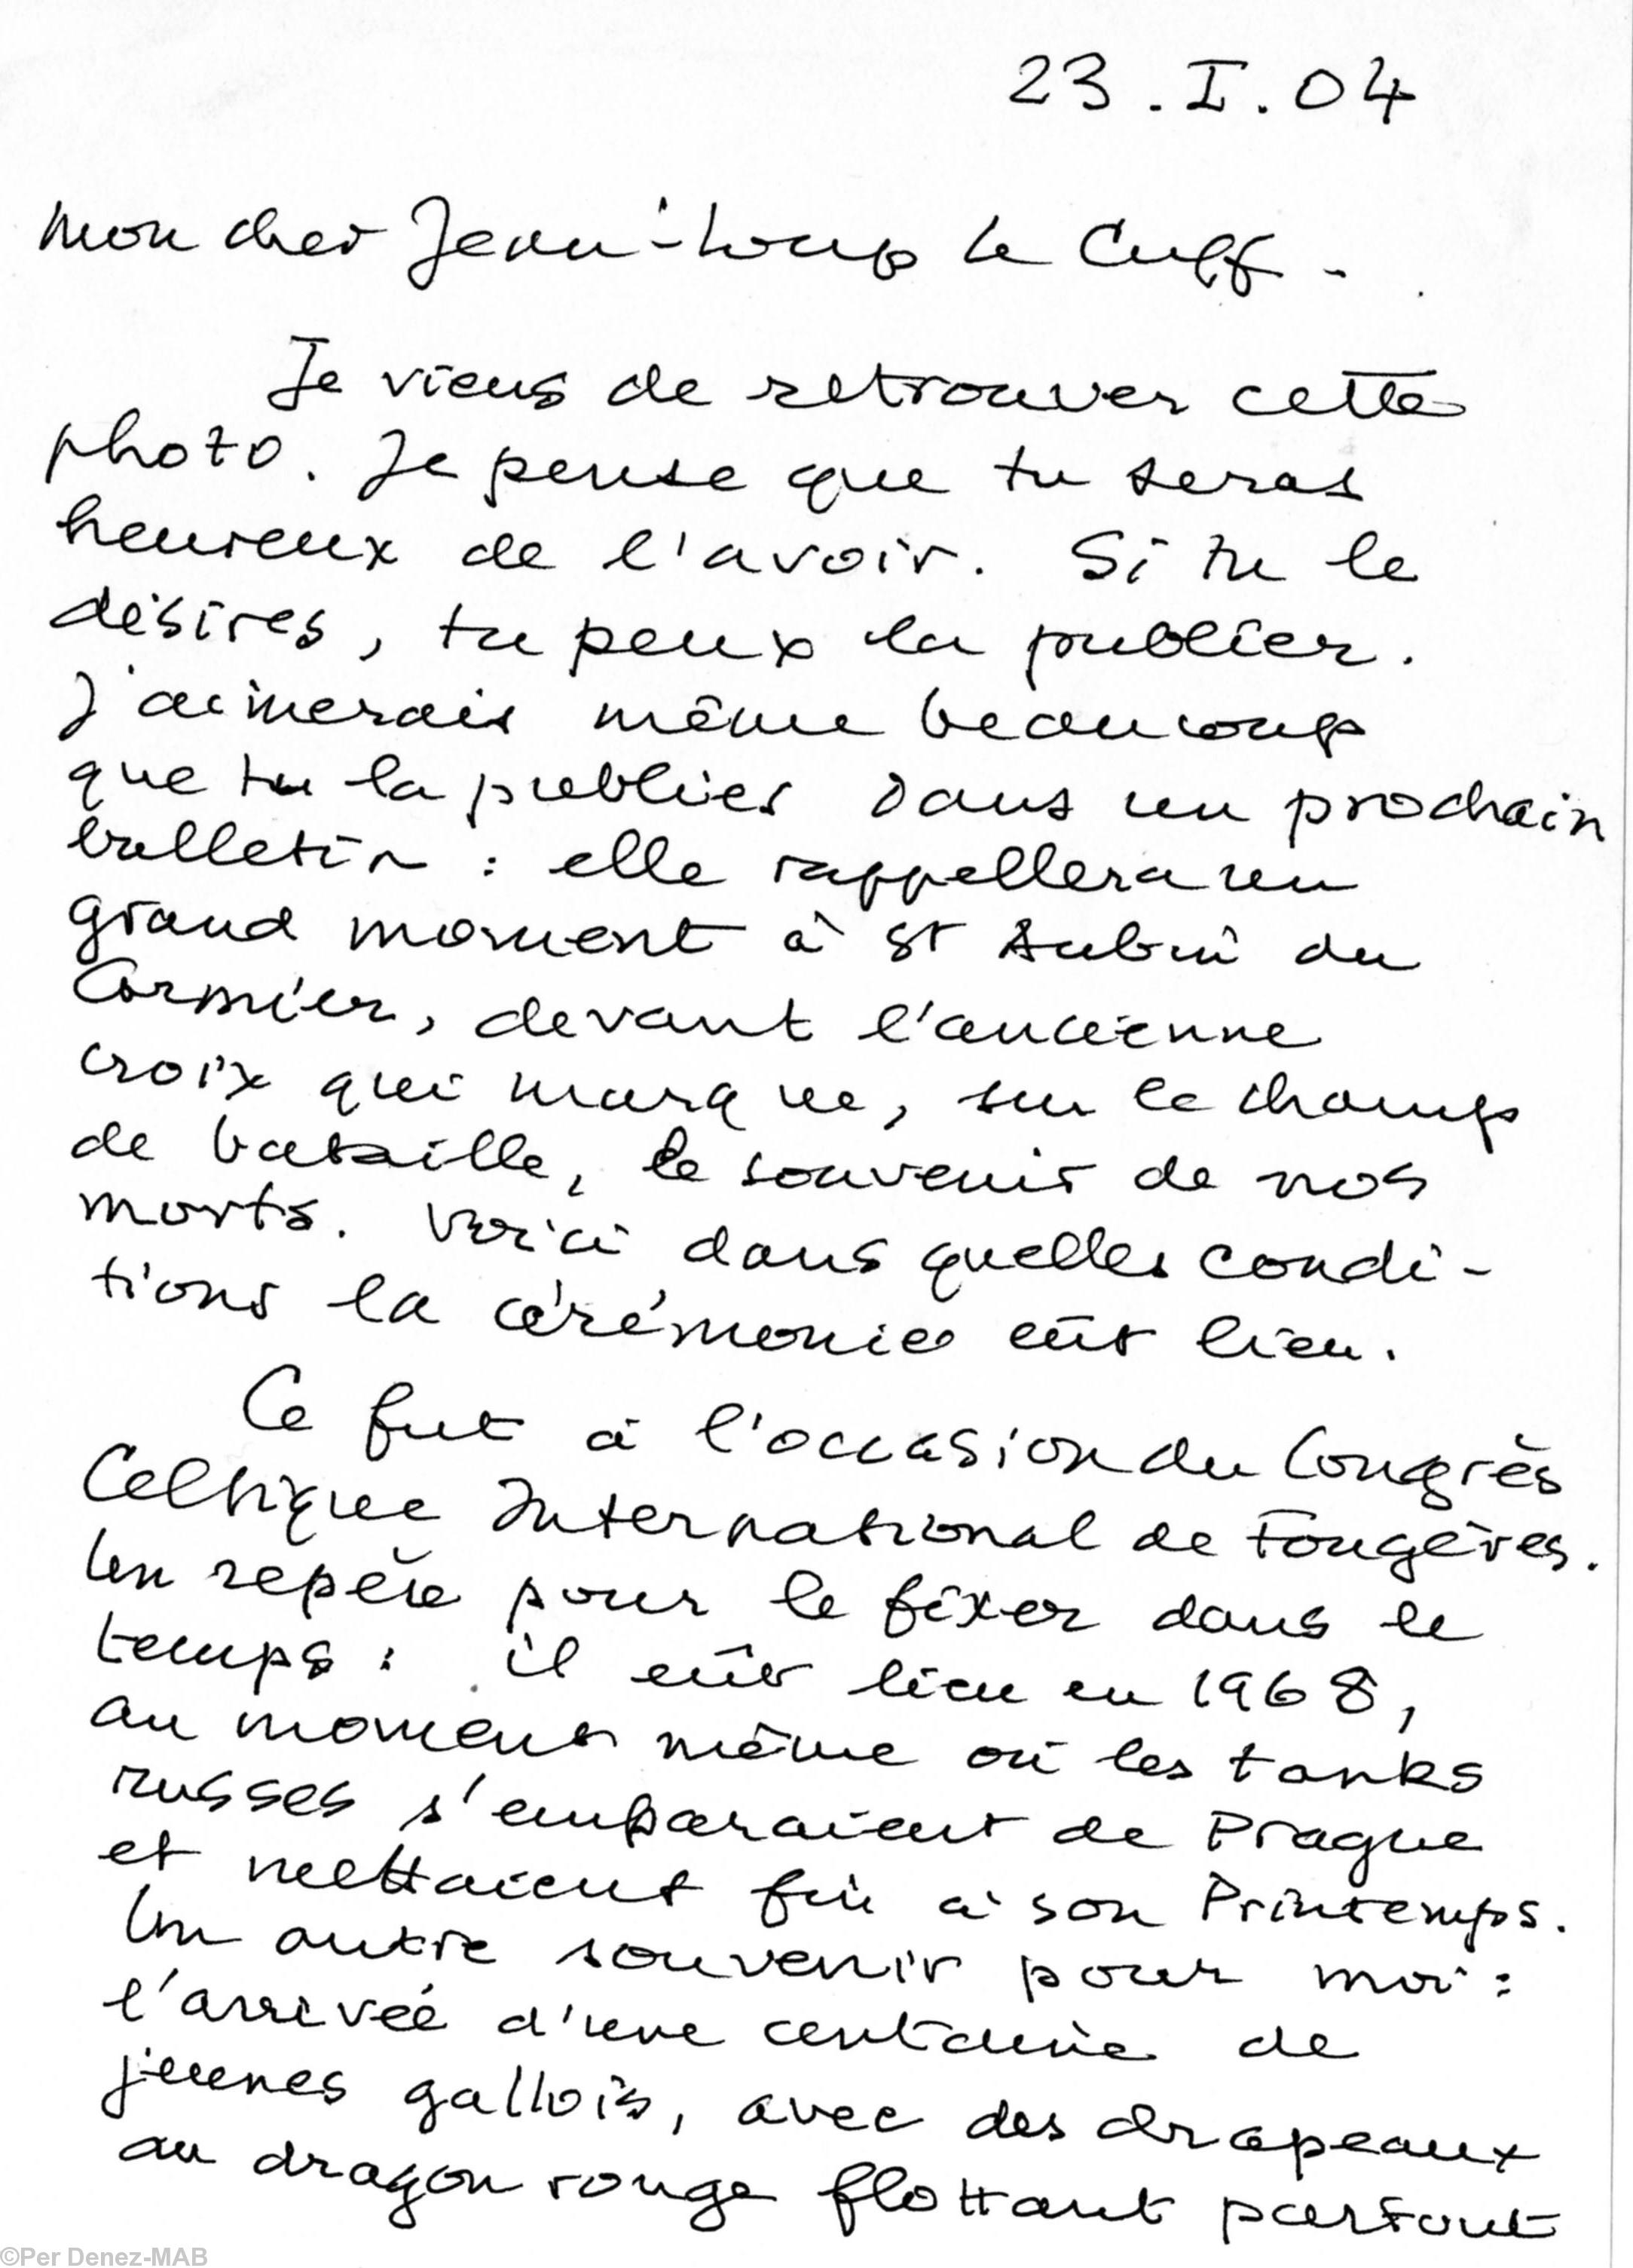 23.I.04
Mon cher Jean-Loup Le Cuff -
Je viens de retrouver cette
photo. Je pense que tu seras
heureux de l'avoir. Si tu le
désires, tu peux la publier.
J'aimerais même beaucoup
que tu la publies dans un prochain
bulletin : elle rappellera un
grand moment à St Aubin du
Cormier, devant l'ancienne
croix qui marque, sur le champ
de bataille, le souvenir de nos
morts. Voici dans quelles condi-
tions la cérémonie eût lieu.
Ce fut à l'occasion du Congrès
Celtique International de Fougères.
Un repère pour le fixer dans le
temps : il eût lieu en 1968,
au moment même où les tanks
russes s'emparaient de Prague
et mettaient fin à son Printemps.
Un autre souvenir pour moi :
l'arrivée d'une centaine de
jeunes gallois, avec des drapeaux
au dragon rouge flottant partout
©Per Denez-MAB